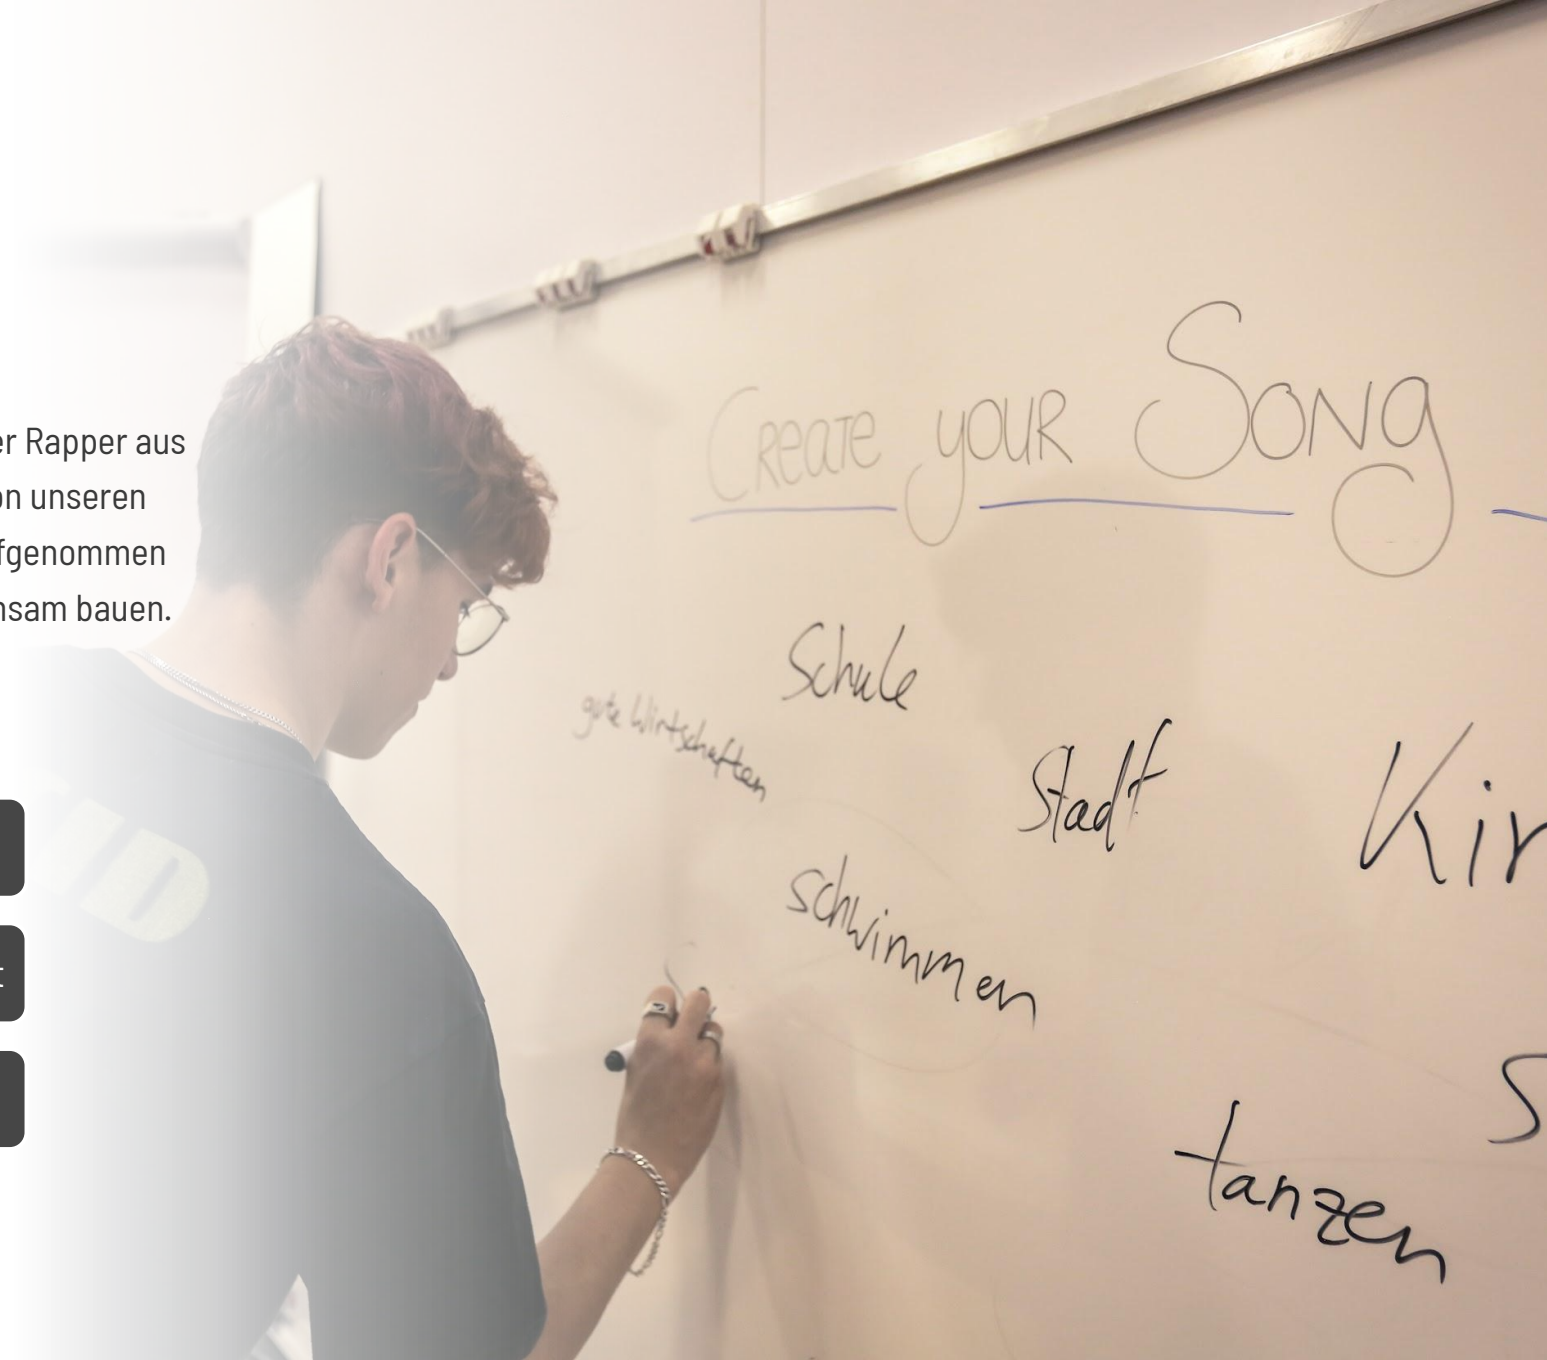 er Rapper aus
on unseren
fgenommen
nsam bauen.
t
CREATE YOUR SONG
Schule
gute Wirtschaften
Stadt
Kir
schwimmen
S
tanzen